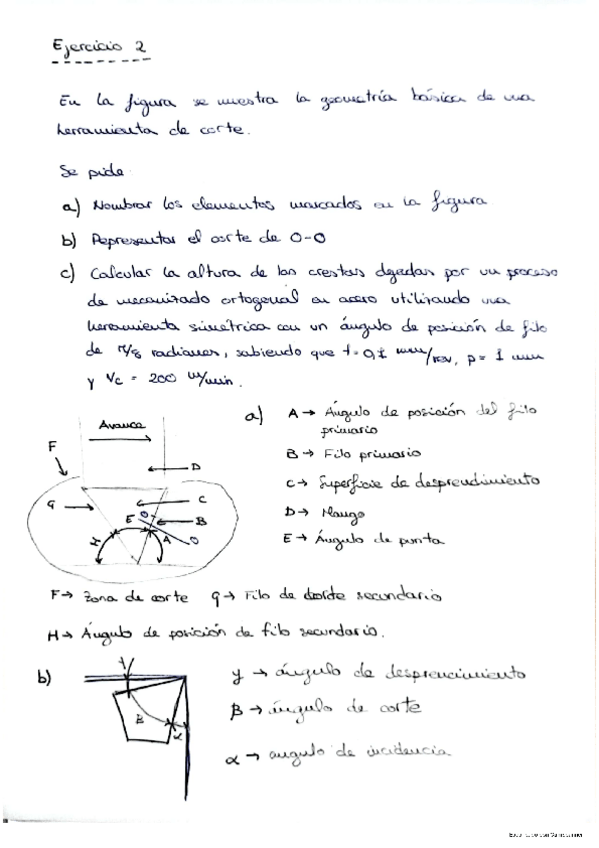 Ejercicio 2
En la figura se muestra la geometría básica de una
herramienta de corte.
Se pide
a) Nombrar los elementos marcados en la figura
b) Representar el corte de O-O
c) Calcular la altura de las crestas dejadas por un proceso
de mecanizado ortogonal en acero utilizando una
herramienta simétrica con un ángulo de posición de filo
de π/8 radianes, sabiendo que f= 0,1 mm/rev, p = 1 mm
y Vc = 200 m/min.
a) A → Ángulo de posición del filo
primario
B → Filo primario
C → Superficie de desprendimiento
D → Mango
E → Ángulo de punta
Avance
F
D
C
G
E
O
B
H
A
O
F → Zona de corte G → Filo de corte secundario
H → Ángulo de posición de filo secundario.
b)
γ
B
α
γ → ángulo de desprencimiento
B → ángulo de corte
α → angulo de incidencia